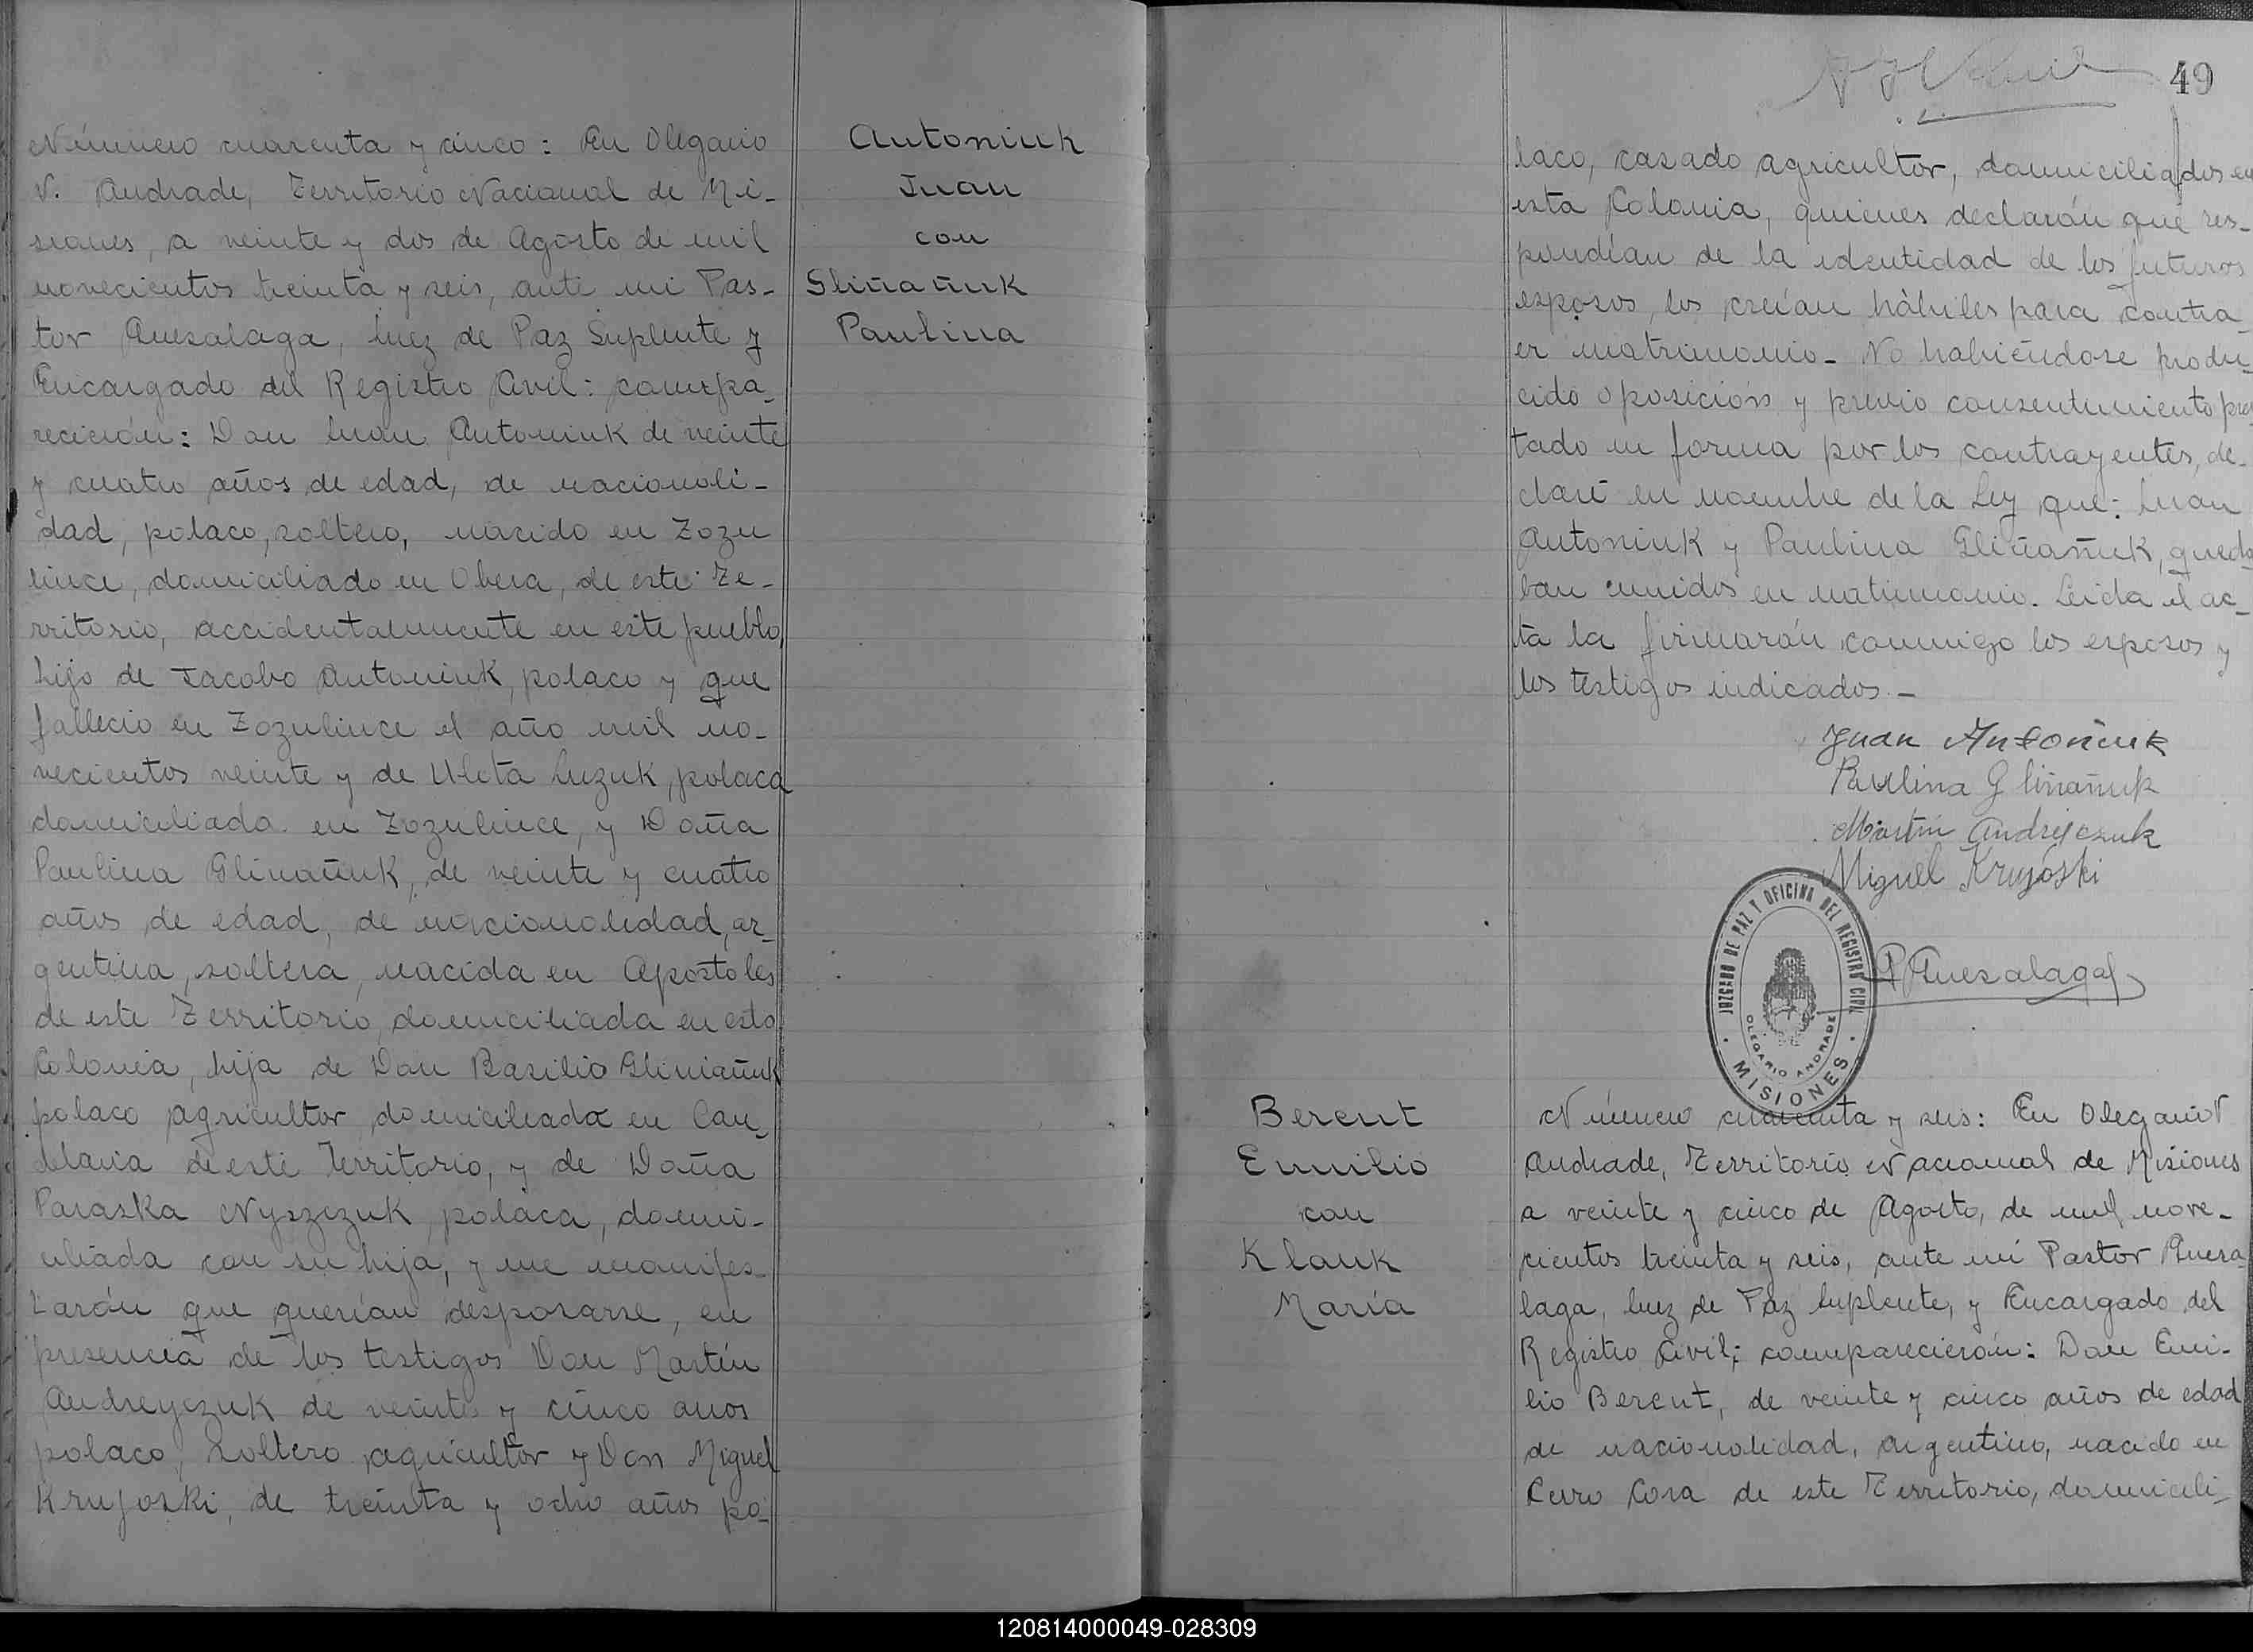 Número cuarenta y cinco: En Olegario
V. Andrade, Territorio Nacional de Mi-
siones, a veinte y dos de Agosto de mil
novecientos treinta y seis, ante mi Pas-
tor Quesalaga, Juez de Paz Suplente y
Encargado del Registro Civil: compa-
recierón: Don Juan Antoniuk de veinte
y cuatro años de edad, de nacionali-
dad, polaco, soltero, nacido en Zozu
lince, domiciliado en Obera, de este Te-
rritorio, accidentalmente en este pueblo,
hijo de Jacobo Antoniuk, polaco y que
fallecio en Zozulince el año mil no-
vecientos veinte y de Uleta Luzuk, polaca
domiciliada en Zozulince, y Doña
Paulina Gliñañuk, de veinte y cuatro
años de edad, de nacionalidad, ar-
gentina, soltera, nacida en Apostoles
de este Territorio, domiciliada en esta
Colonia, hija de Don Basilio Gliniañuk
polaco agricultor domiciliada en Can-
delaria de este Territorio, y de Doña
Paraska Nyszczuk, polaca, domi-
ciliada con su hija, y me manifes-
tarón que querían desposarse, en
presencia de los testigos Don Martín
Andreyczuk de veinte y cinco anos
polaco, soltero agricultor y Don Miguel
Krujoski, de treinta y ocho años po-
Antoniuk
Juan
con
Gliñañuk
Paulina
49
laco, casado agricultor, domiciliados en
esta Colonia, quienes declarón que res-
pondían de la identidad de los futuros
esposos, los creían hábiles para contra-
er matrimonio- No habiéndose produ-
cido oposición y previo consentimiento pres
tado en forma por los contrayentes, de-
claré en nombre de la Ley que: Juan
Antoniuk y Paulina Gliñañuk, queda-
ban unidos en matrimonio. Leida el ac-
ta la firmarón conmigo los esposos y
los testigos indicados.-
Juan Antoñiuk
Paulina Gliñañuk
Martín Andrejczuk
Miguel Krujóski
P Quesalaga
JUZGADO DE PAZ Y OFICINA DEL REGISTRO CIVIL
OLEGARIO ANDRADE
MISIONES
Berent
Emilio
con
Klauk
María
Número cuarenta y seis: En Olegario V
Andrade, Territorio Nacional de Misiones
a veinte y cinco de Agosto, de mil nove-
cientos treinta y seis, ante mí Pastor Quesa-
laga, Juez de Paz Suplente, y Encargado del
Registro Civil; comparecierón: Don Emi-
lio Berent, de veinte y cinco años de edad
de nacionalidad, argentino, nacido en
Cerro Cora de este Territorio, domicili-
120814000049-028309